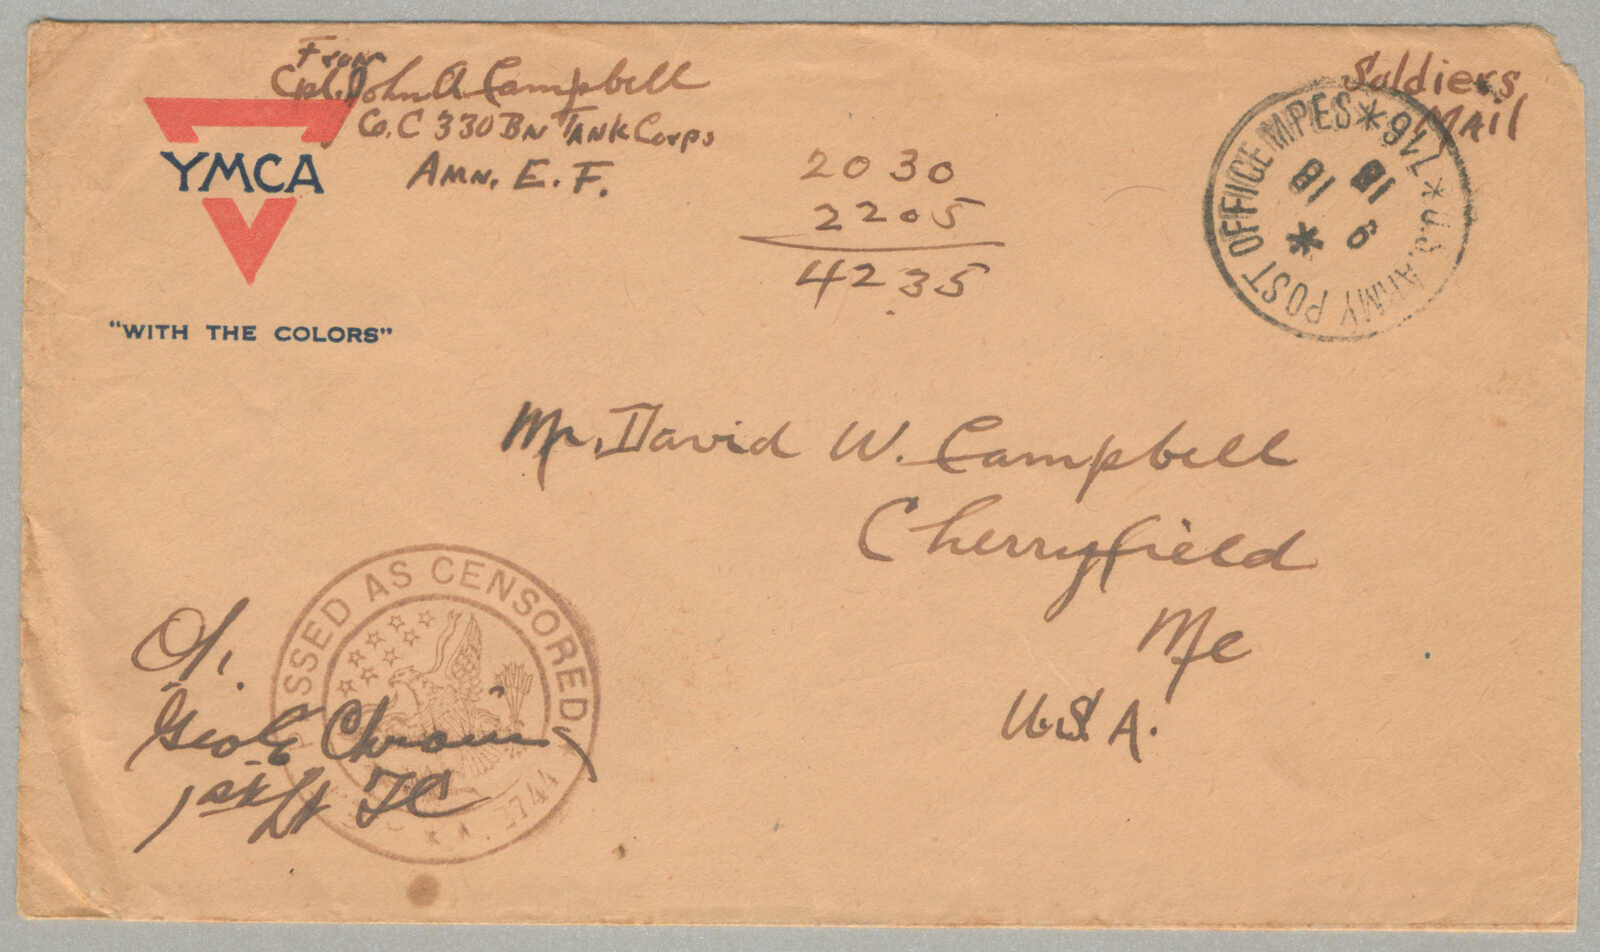 From
Cpl. John A Campbell
Co. C 330 Bn Tank Corps
Amn. E. F.
YMCA
"WITH THE COLORS"
2030
2205
4235
Soldiers
Mail
U.S. ARMY POST OFFICE MPES * 716 *
18
18
9
*
Mr. David W. Campbell
Cherryfield
Me
U.S.A.
SSED AS CENSORED
OK.
Geo E
1st Lt TC